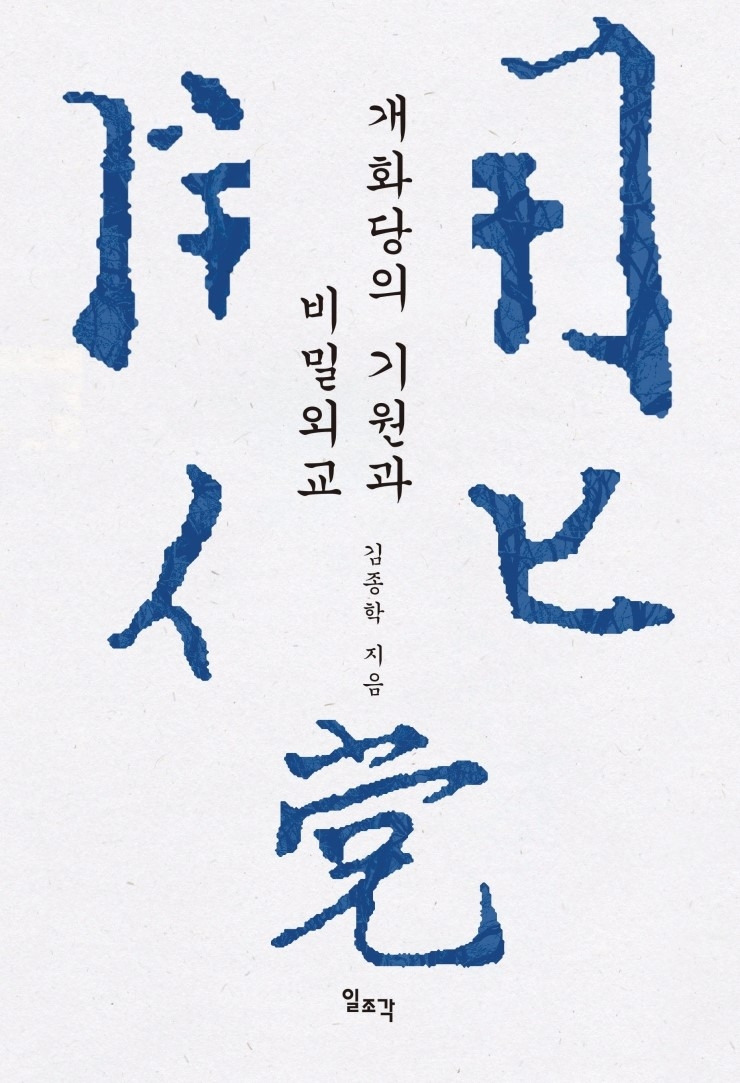 開化党
개화당의 기원과
비밀외교
김종학 지음
일조각